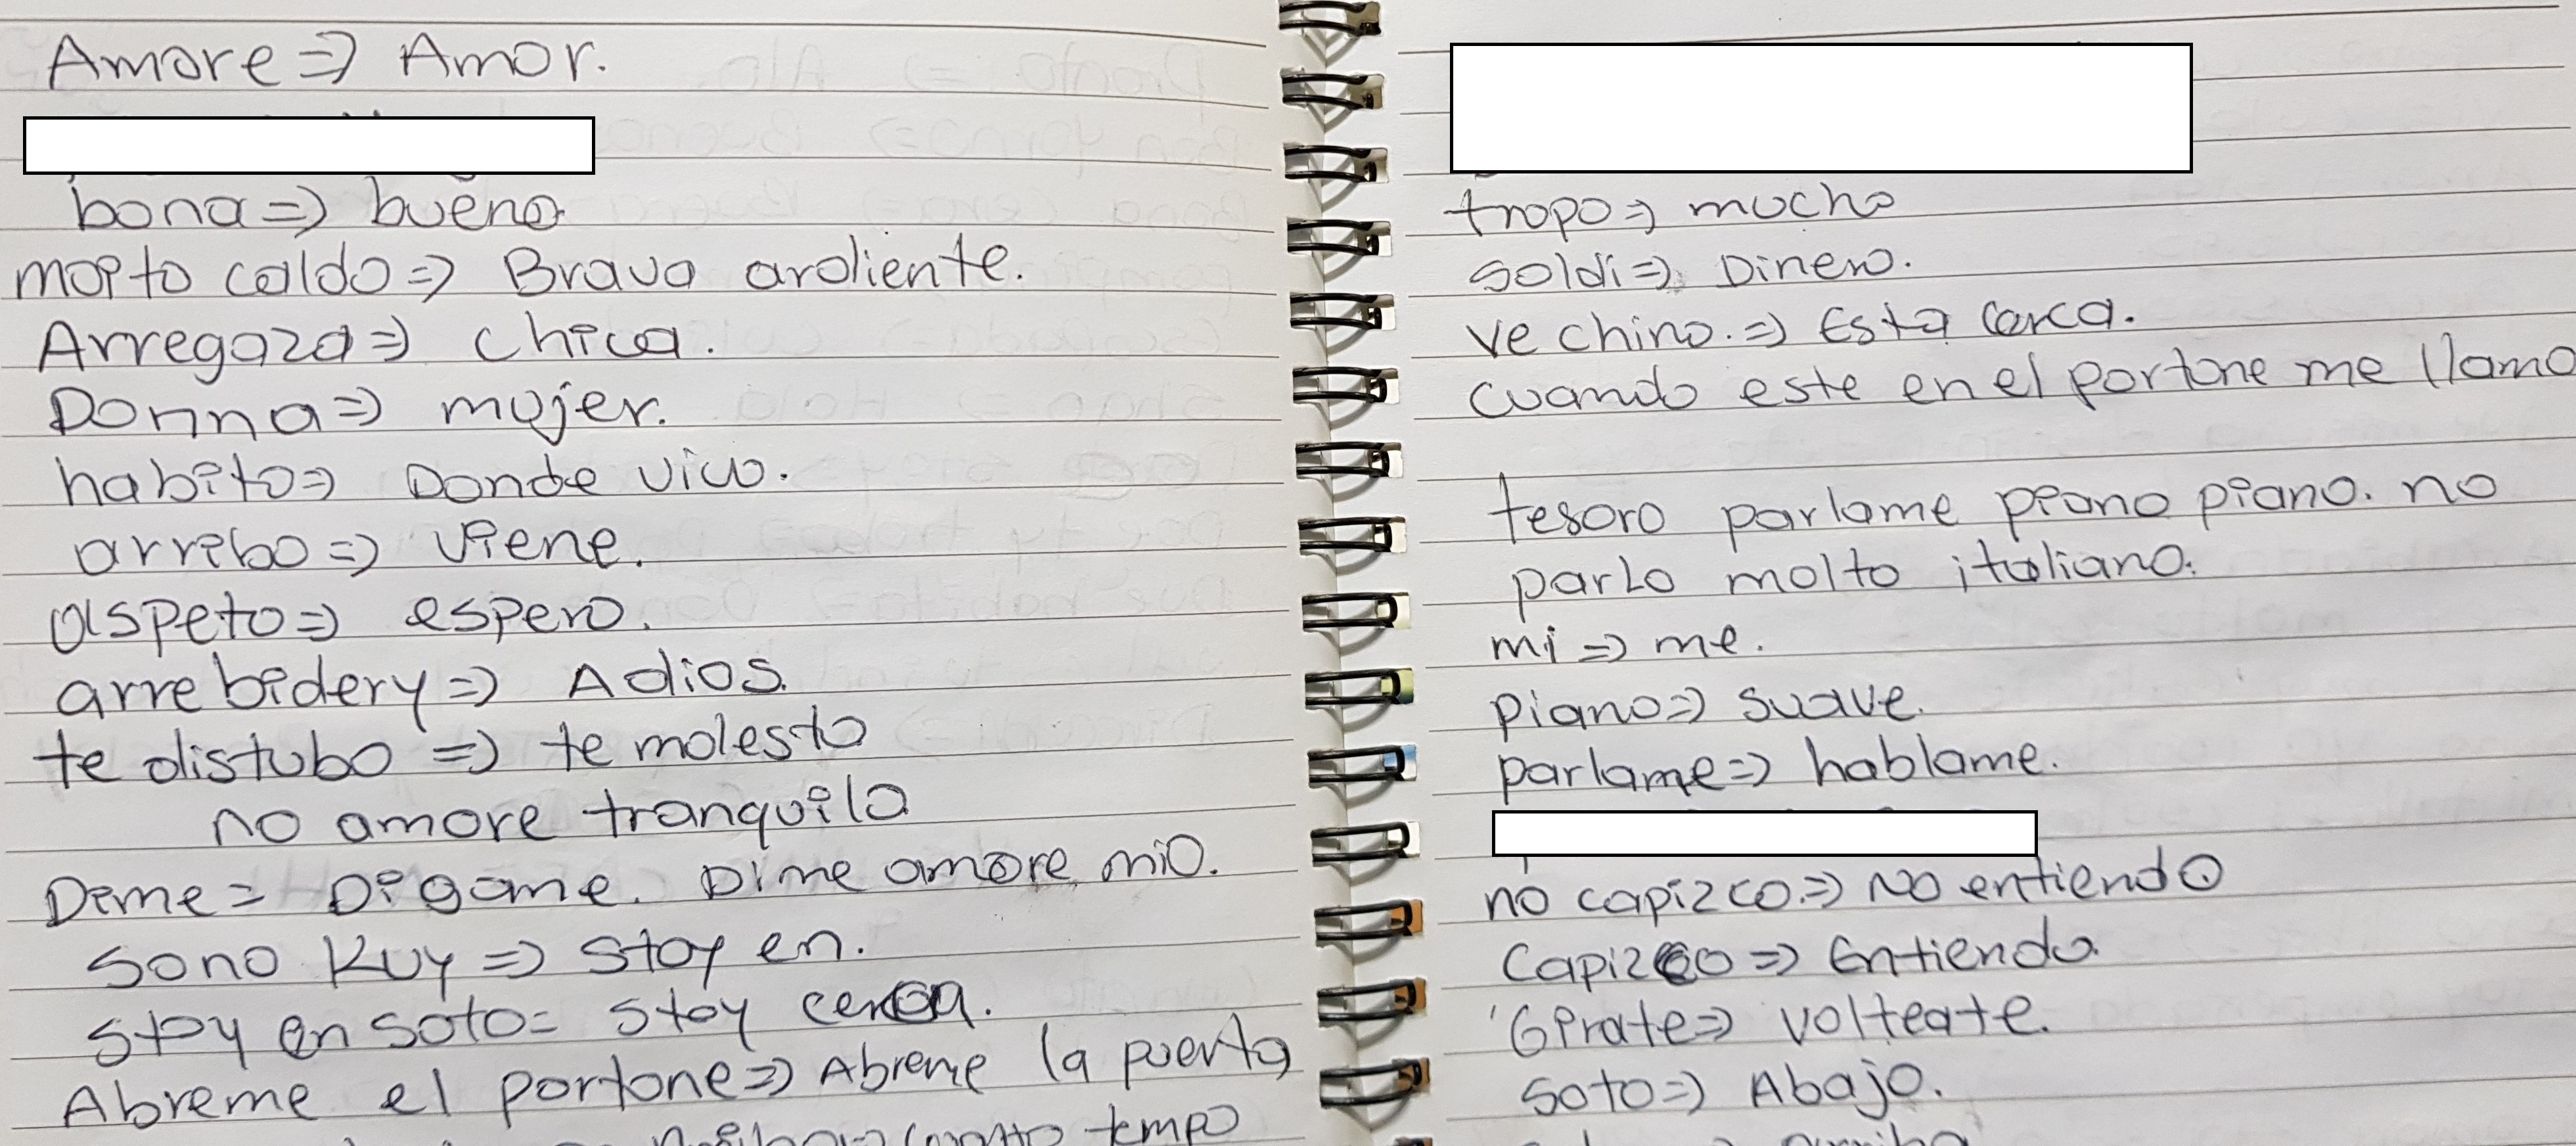 Amore => Amor.
bona => bueno
moito caldo => Brava ardiente.
Arregaza => chica.
Donna => mujer.
habito => Donde vivo.
arribo => viene.
aspeto => espero.
arrebidery => Adios.
te distubo => te molesto
no amore tranquilo
Dime = Digame. Dime amore mio.
Sono Kuy => Stoy en.
Stoy en soto = stoy cerca.
Abreme el portone => Abreme la puerta
tempo
tropo => mucho
soldi => Dinero.
ve chino. => Esta cerca.
cuando este en el portone me llama
tesoro parlame piano piano. no
parlo molto italiano.
mi => me.
piano => suave.
parlame => hablame.
no capizco. => No entiendo
Capizco => Entiendo.
Girate => volteate.
soto => Abajo.